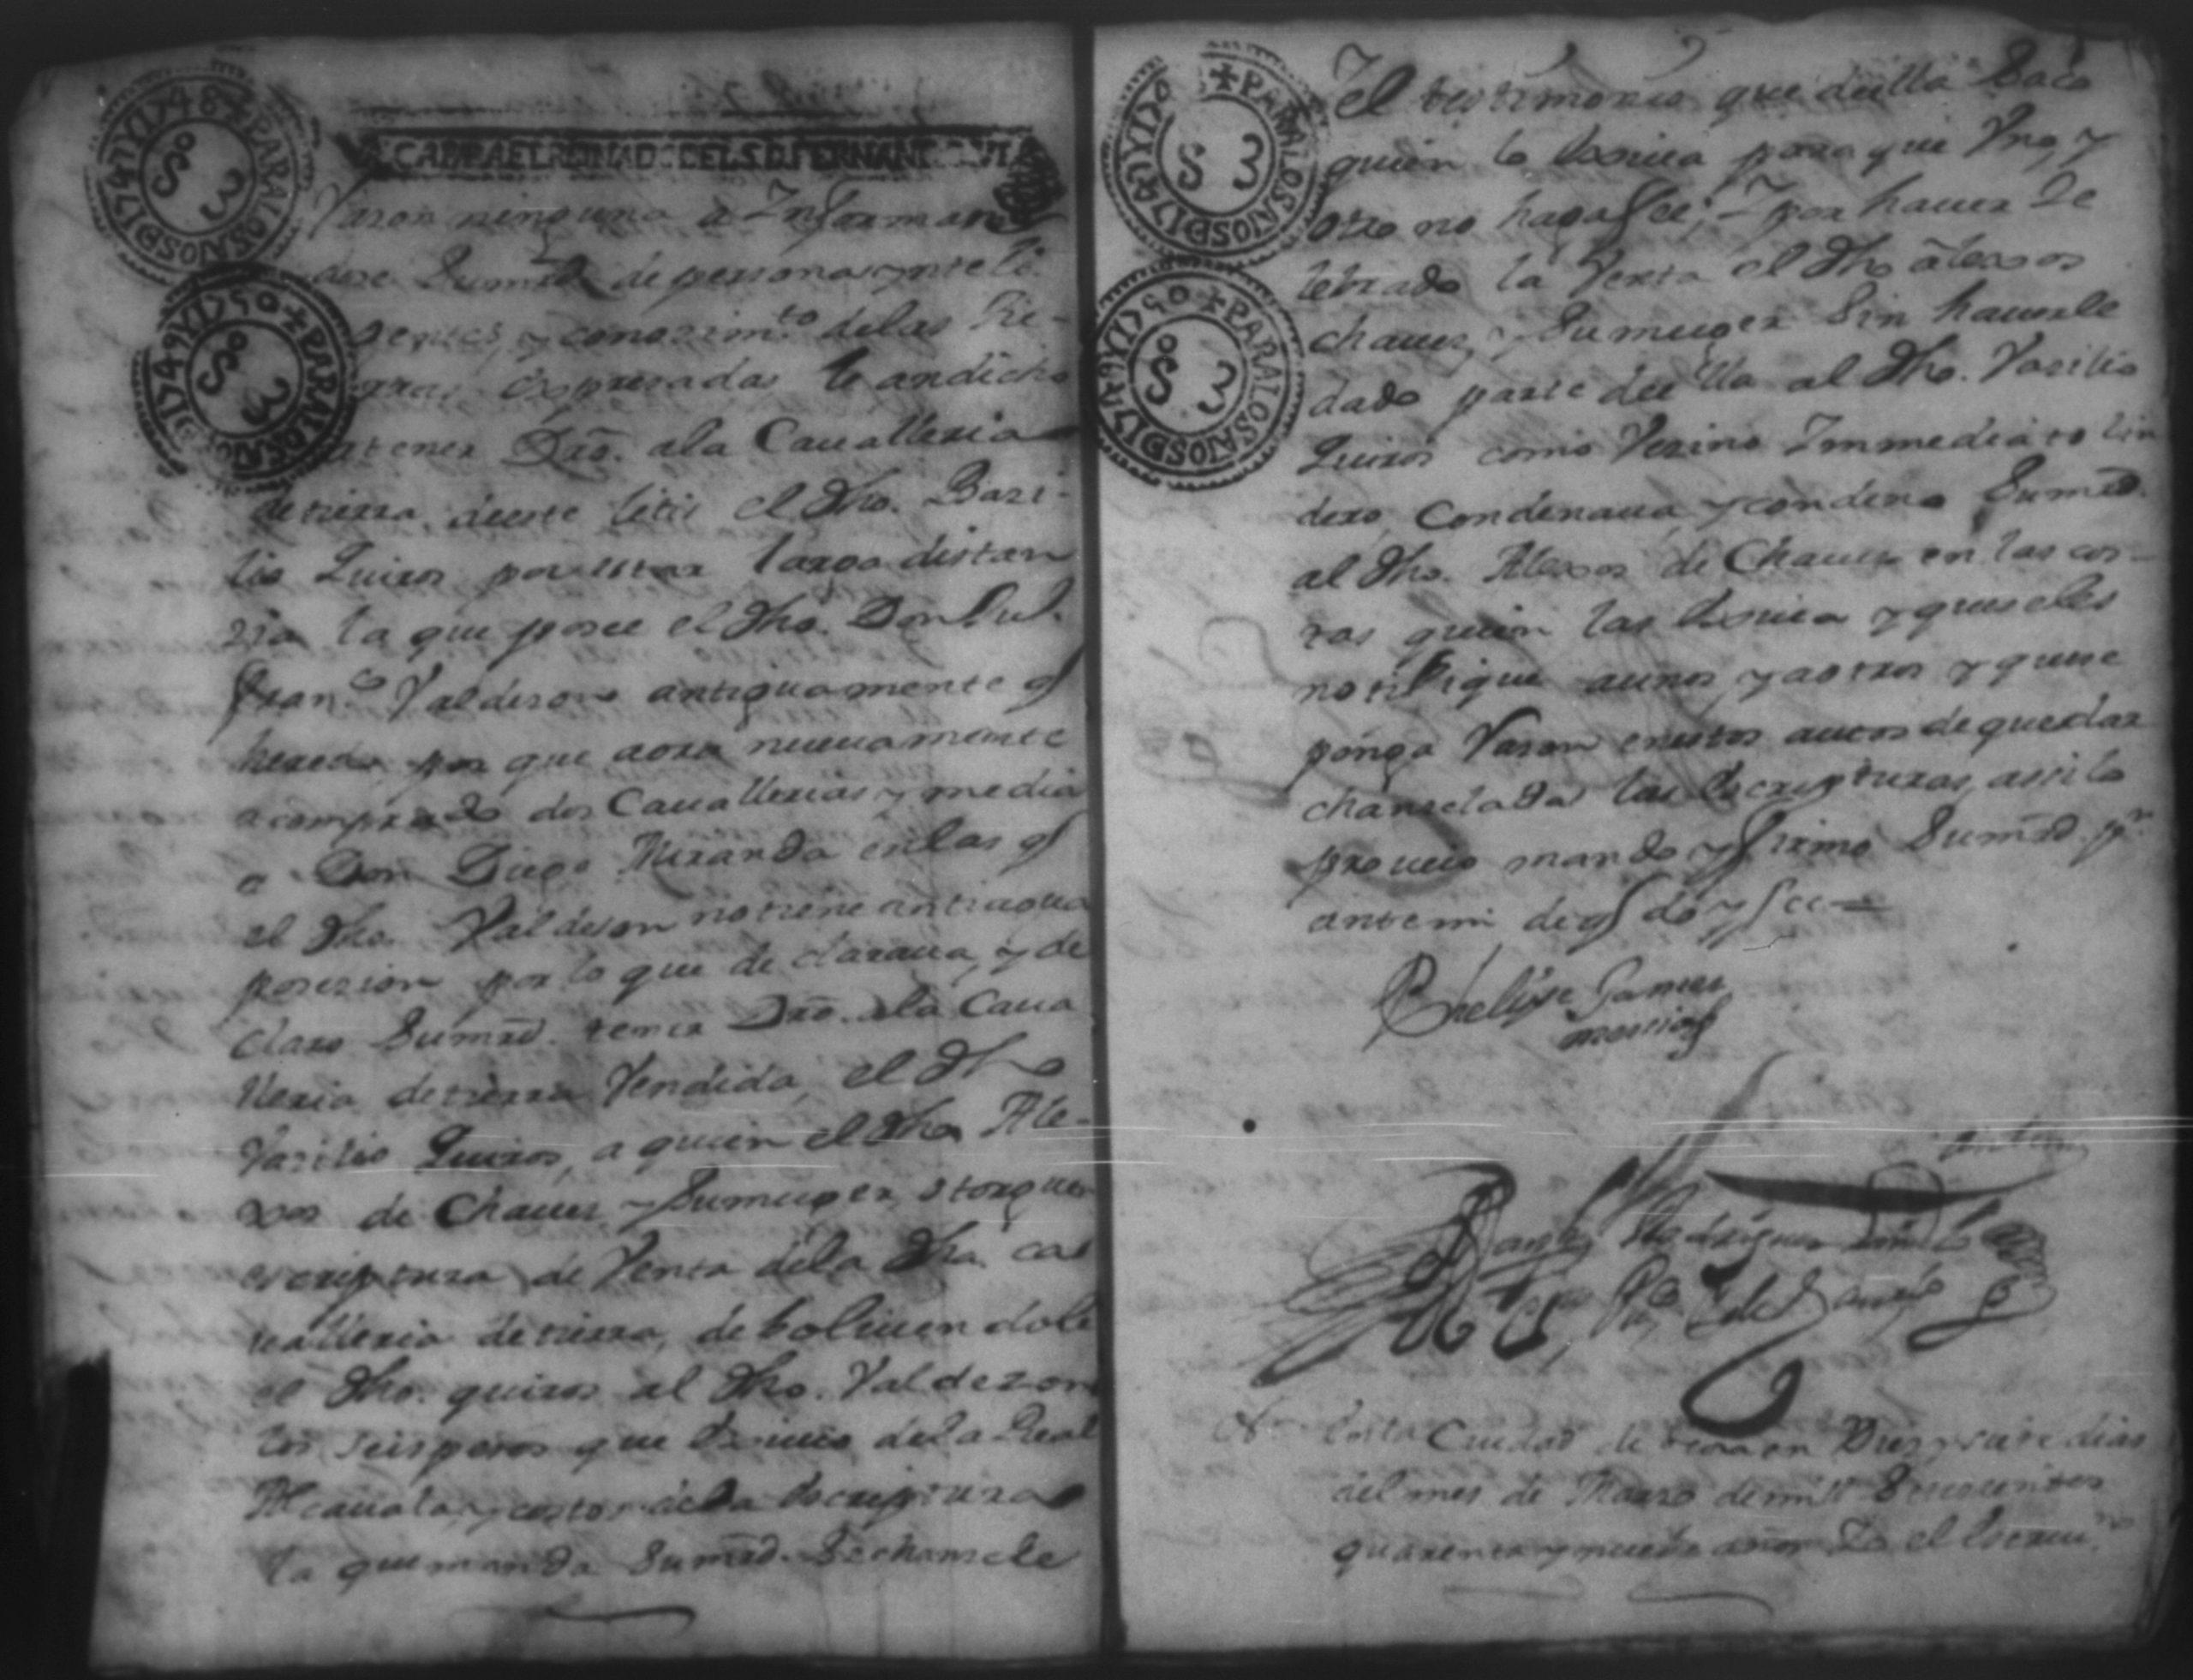 PARA LOS AÑOS DE 1747 Y 1748
Sº 3
VALGA PARA EL REINADO DEL S.D. FERNANDO VI
PARA LOS AÑOS DE 1749 Y 1750
Sº 3
Varon ninguna e Informan
dose Sumrd de personas ynteli
gentes, y conosimto. delas Tie-
rras expresadas le an dicho
tener Dro. ala Cauallexia
de tierra deeste litis el dho. Bazi-
lio Quiros por estar larga distan
zia la que posee el dho. Don
Franco. Valdeson antiguamente q
hereda por que aora nueuamente
a comprado dos Cauallexias y media
a Don Diego Miranda en las q
el dho. Valdeson no tiene antiagua
posezion por lo que de claraua, y de
claro Sumrd. tener Dro. ala Caua
llexia de tierra Vendida, el dho
Vazilio Quiros, a quien el dho Ale-
xos de Chaues y Sumuger, otorguen
escriptura de Venta dela dha ca
uallexia de tierra, debolbiendole
el dho. quiros al dho. Valdezon
los seis pesos que deela Real
Alcauala, y costos dela Escriptura
la que manda Sumrd. Sechansele
PARA LOS AÑOS DE 1747 Y 1748
S 3
PARA LOS AÑOS DE 1749 Y 1750
Sº 3
Y el testimonio que deella Saco
quien lo para que Vno, y
otro no haga fee; Y por hauer Se
lebrado la Venta el dho alexos
chaues, y Sumuger Sin hauerle
dado parte deella al dho. Vazilio
Quiros como Vezino Immediato lin
dero, Condenaua, y condeno Sumrd.
al dho. Alexos de Chaues en las cos-
tas quien las y que seles
notifique aunos, y aotros y quese
ponga Varon enestos autos de quedar
chanselada las Escripturas, assi lo
proueio mando y firmo Sumrd. pr.
antemi de q doy fee
Phelipe Gamez
messia
ante mi
Rodriguez
Enesta Ciudad de en Diez y siete dias
del mes de Marzo de mill Setecientos
quarenta y nueue años Yo el Escriu.no